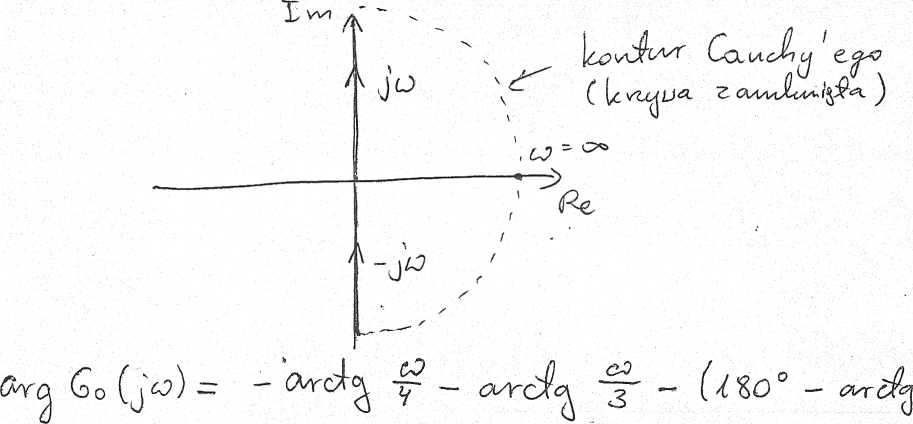 Im
kontur Cauchy'ego
(krzywa zamknięta)
jω
ω = ∞
Re
-jω
arg G₀(jω) = - arctg ω/4 - arctg ω/3 - (180° - arctg